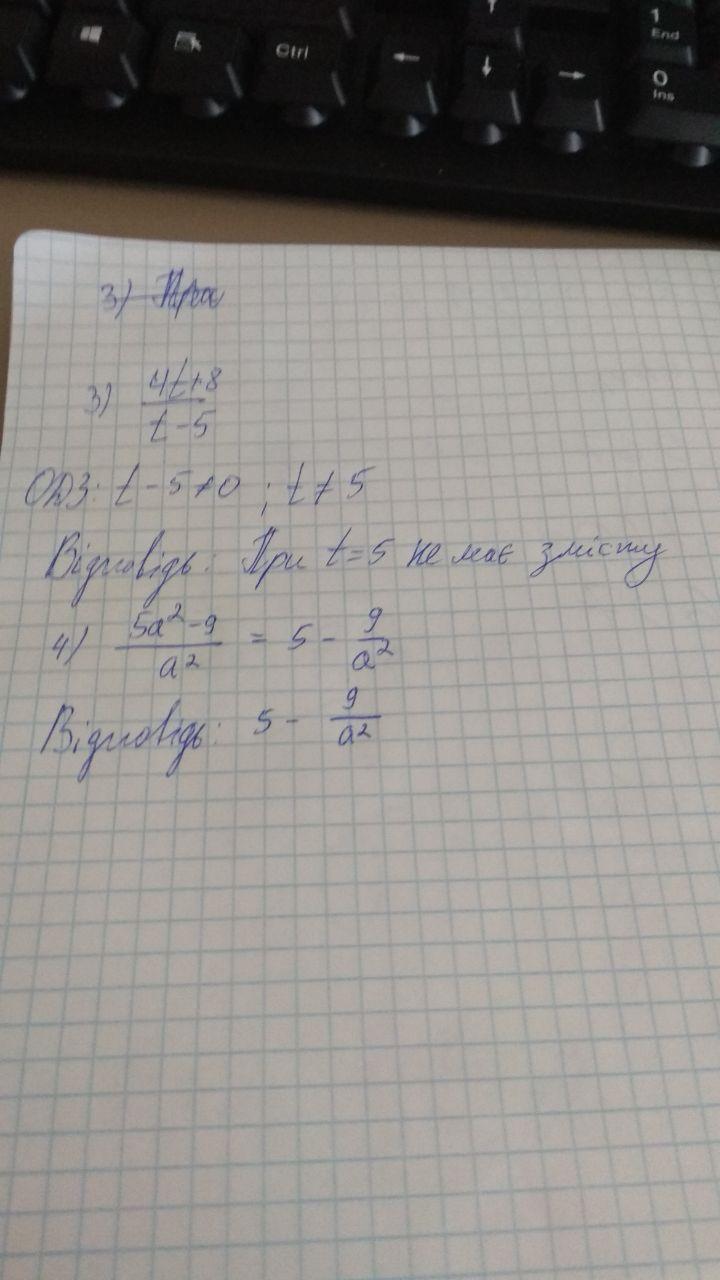 Ctrl
1
End
0
Ins
3) При
3) 4t+8 / t-5
ОДЗ: t-5≠0 ; t≠5
Відповідь: При t=5 не має змісту
4) 5a²-9 / a² = 5 - 9/a²
Відповідь: 5 - 9/a²